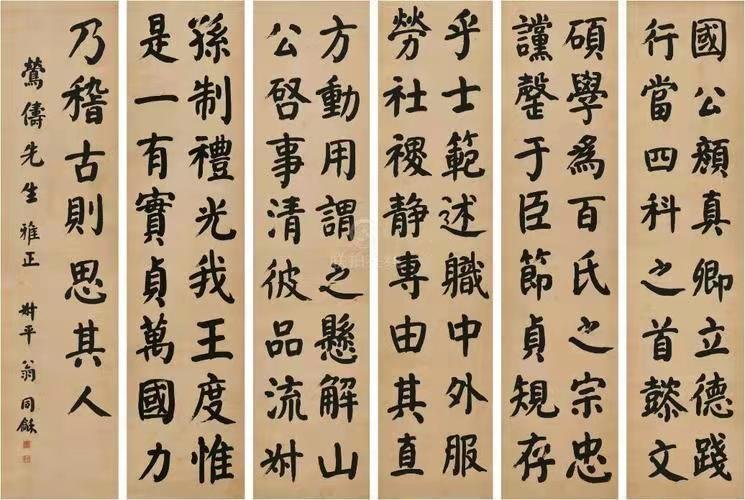 國公顏真卿立德踐
行當四科之首懿文
碩學為百氏之宗忠
讜罄于臣節貞規存
乎士範述軄中外服
勞社稷静專由其直
方動用謂之懸解山
公啓事清彼品流叔
孫制禮光我王度惟
是一有實貞萬國力
乃稽古則思其人
鶯儔先生雅正 叔平翁同龢